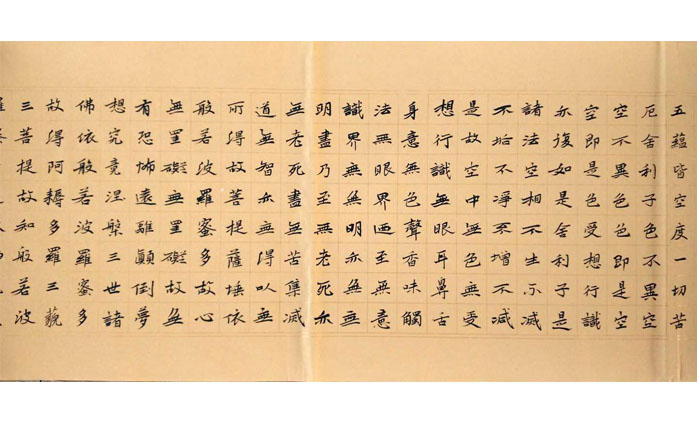 五蘊皆空度一切苦
厄舍利子色不異空
空不異色色即是空
空即是色受想行識
亦復如是舍利子是
諸法空相不生不滅
不垢不淨不增不減
是故空中無色無受
想行識無眼耳鼻舌
身意無色聲香味觸
法無眼界迺至無意
識界無無明亦無無
明盡乃至無老死亦
無老死盡無苦集滅
道無智亦無得以無
所得故菩提薩埵依
般若波羅蜜多故心
無罣礙無罣礙故無
有恐怖遠離顛倒夢
想究竟涅槃三世諸
佛依般若波羅蜜多
故得阿耨多羅三藐
三菩提故知般若波